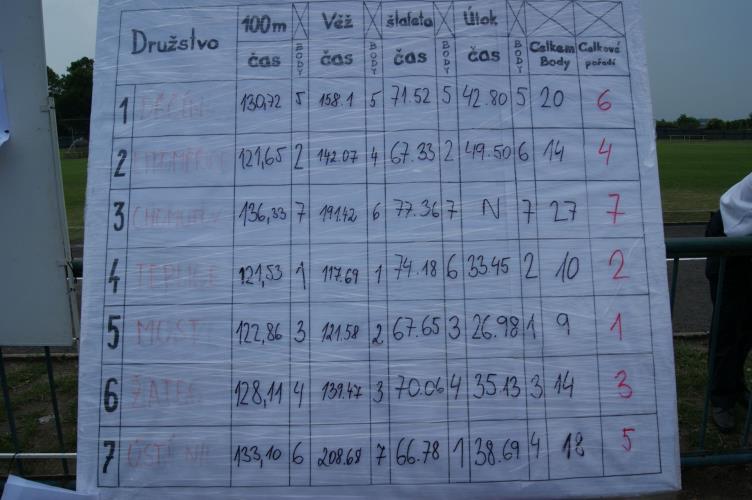 Družstvo 100m Věž štafeta Útok
čas BODY čas BODY čas BODY čas BODY Celkem Body Celkové pořadí
1 DĚČÍN 130,72 5 158.1 5 71.52 5 42.80 5 20 6
2 121,65 2 142.07 4 67.33 2 49.50 6 14 4
3 CHOMUTOV 136,33 7 191.42 6 77.36 7 N 7 27 7
4 TEPLICE 121,53 1 117.69 1 74.18 6 33.45 2 10 2
5 MOST 122,86 3 121.58 2 67.65 3 26.98 1 9 1
6 ŽATEC 128,11 4 139.47 3 70.06 4 35.13 3 14 3
7 ÚSTÍ N/L 133,10 6 208.68 7 66.78 1 38.69 4 18 5